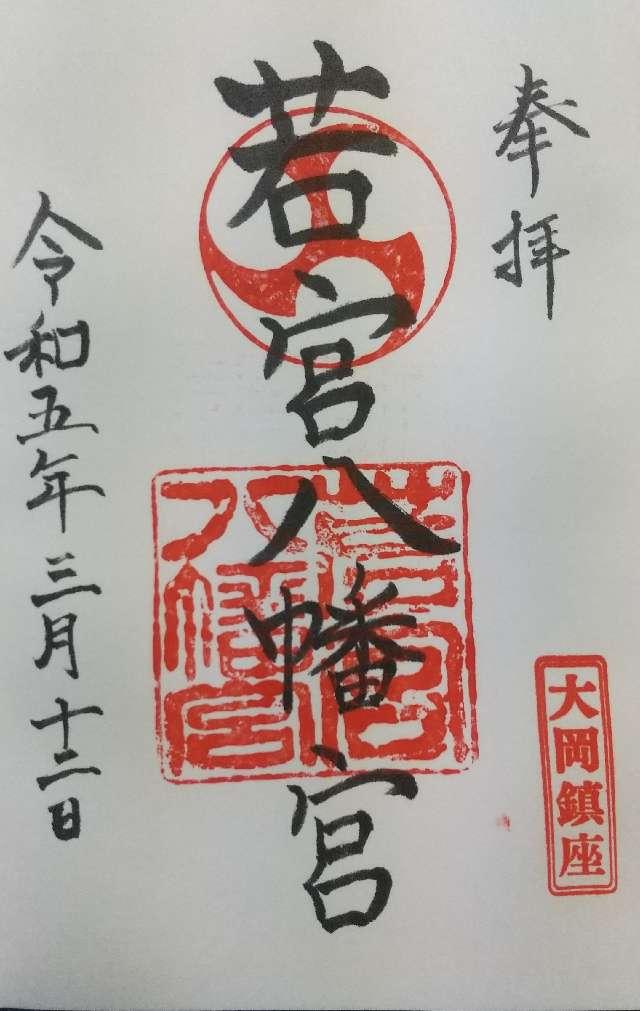 奉拝
大岡鎮座
若宮八幡宮
若宮
八幡宮
令和五年三月十二日